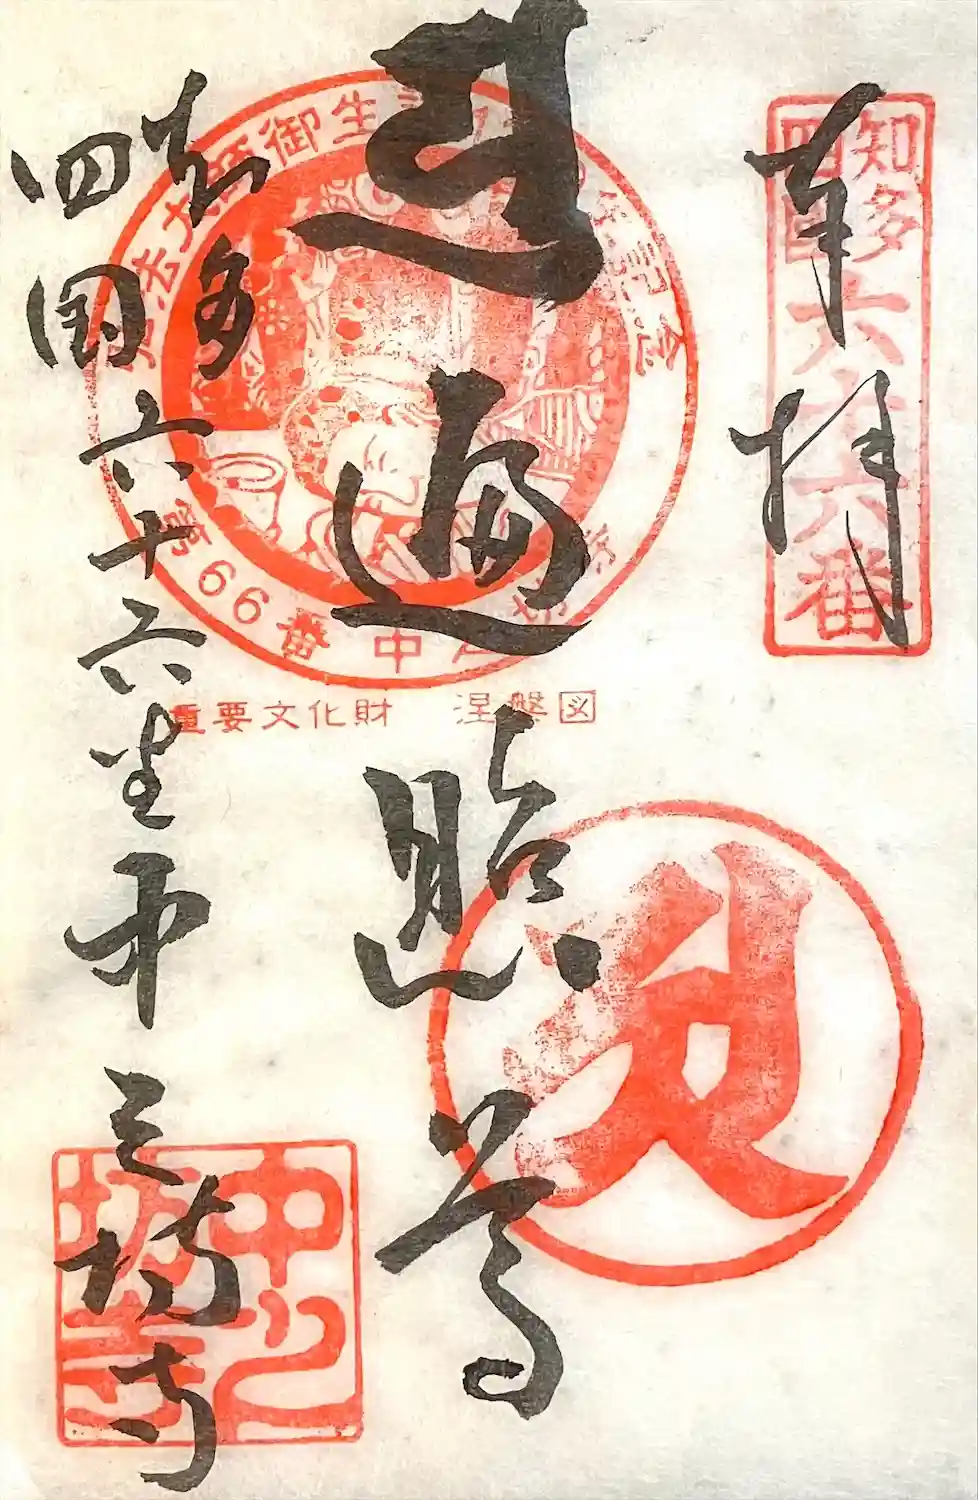 知多
四国
六十六番
奉拝
弘法大師御生 年記念
第66番 中之坊寺
重要文化財 涅槃図
遍照尊
知多
四国
六十六番 中之坊寺
中之
坊寺